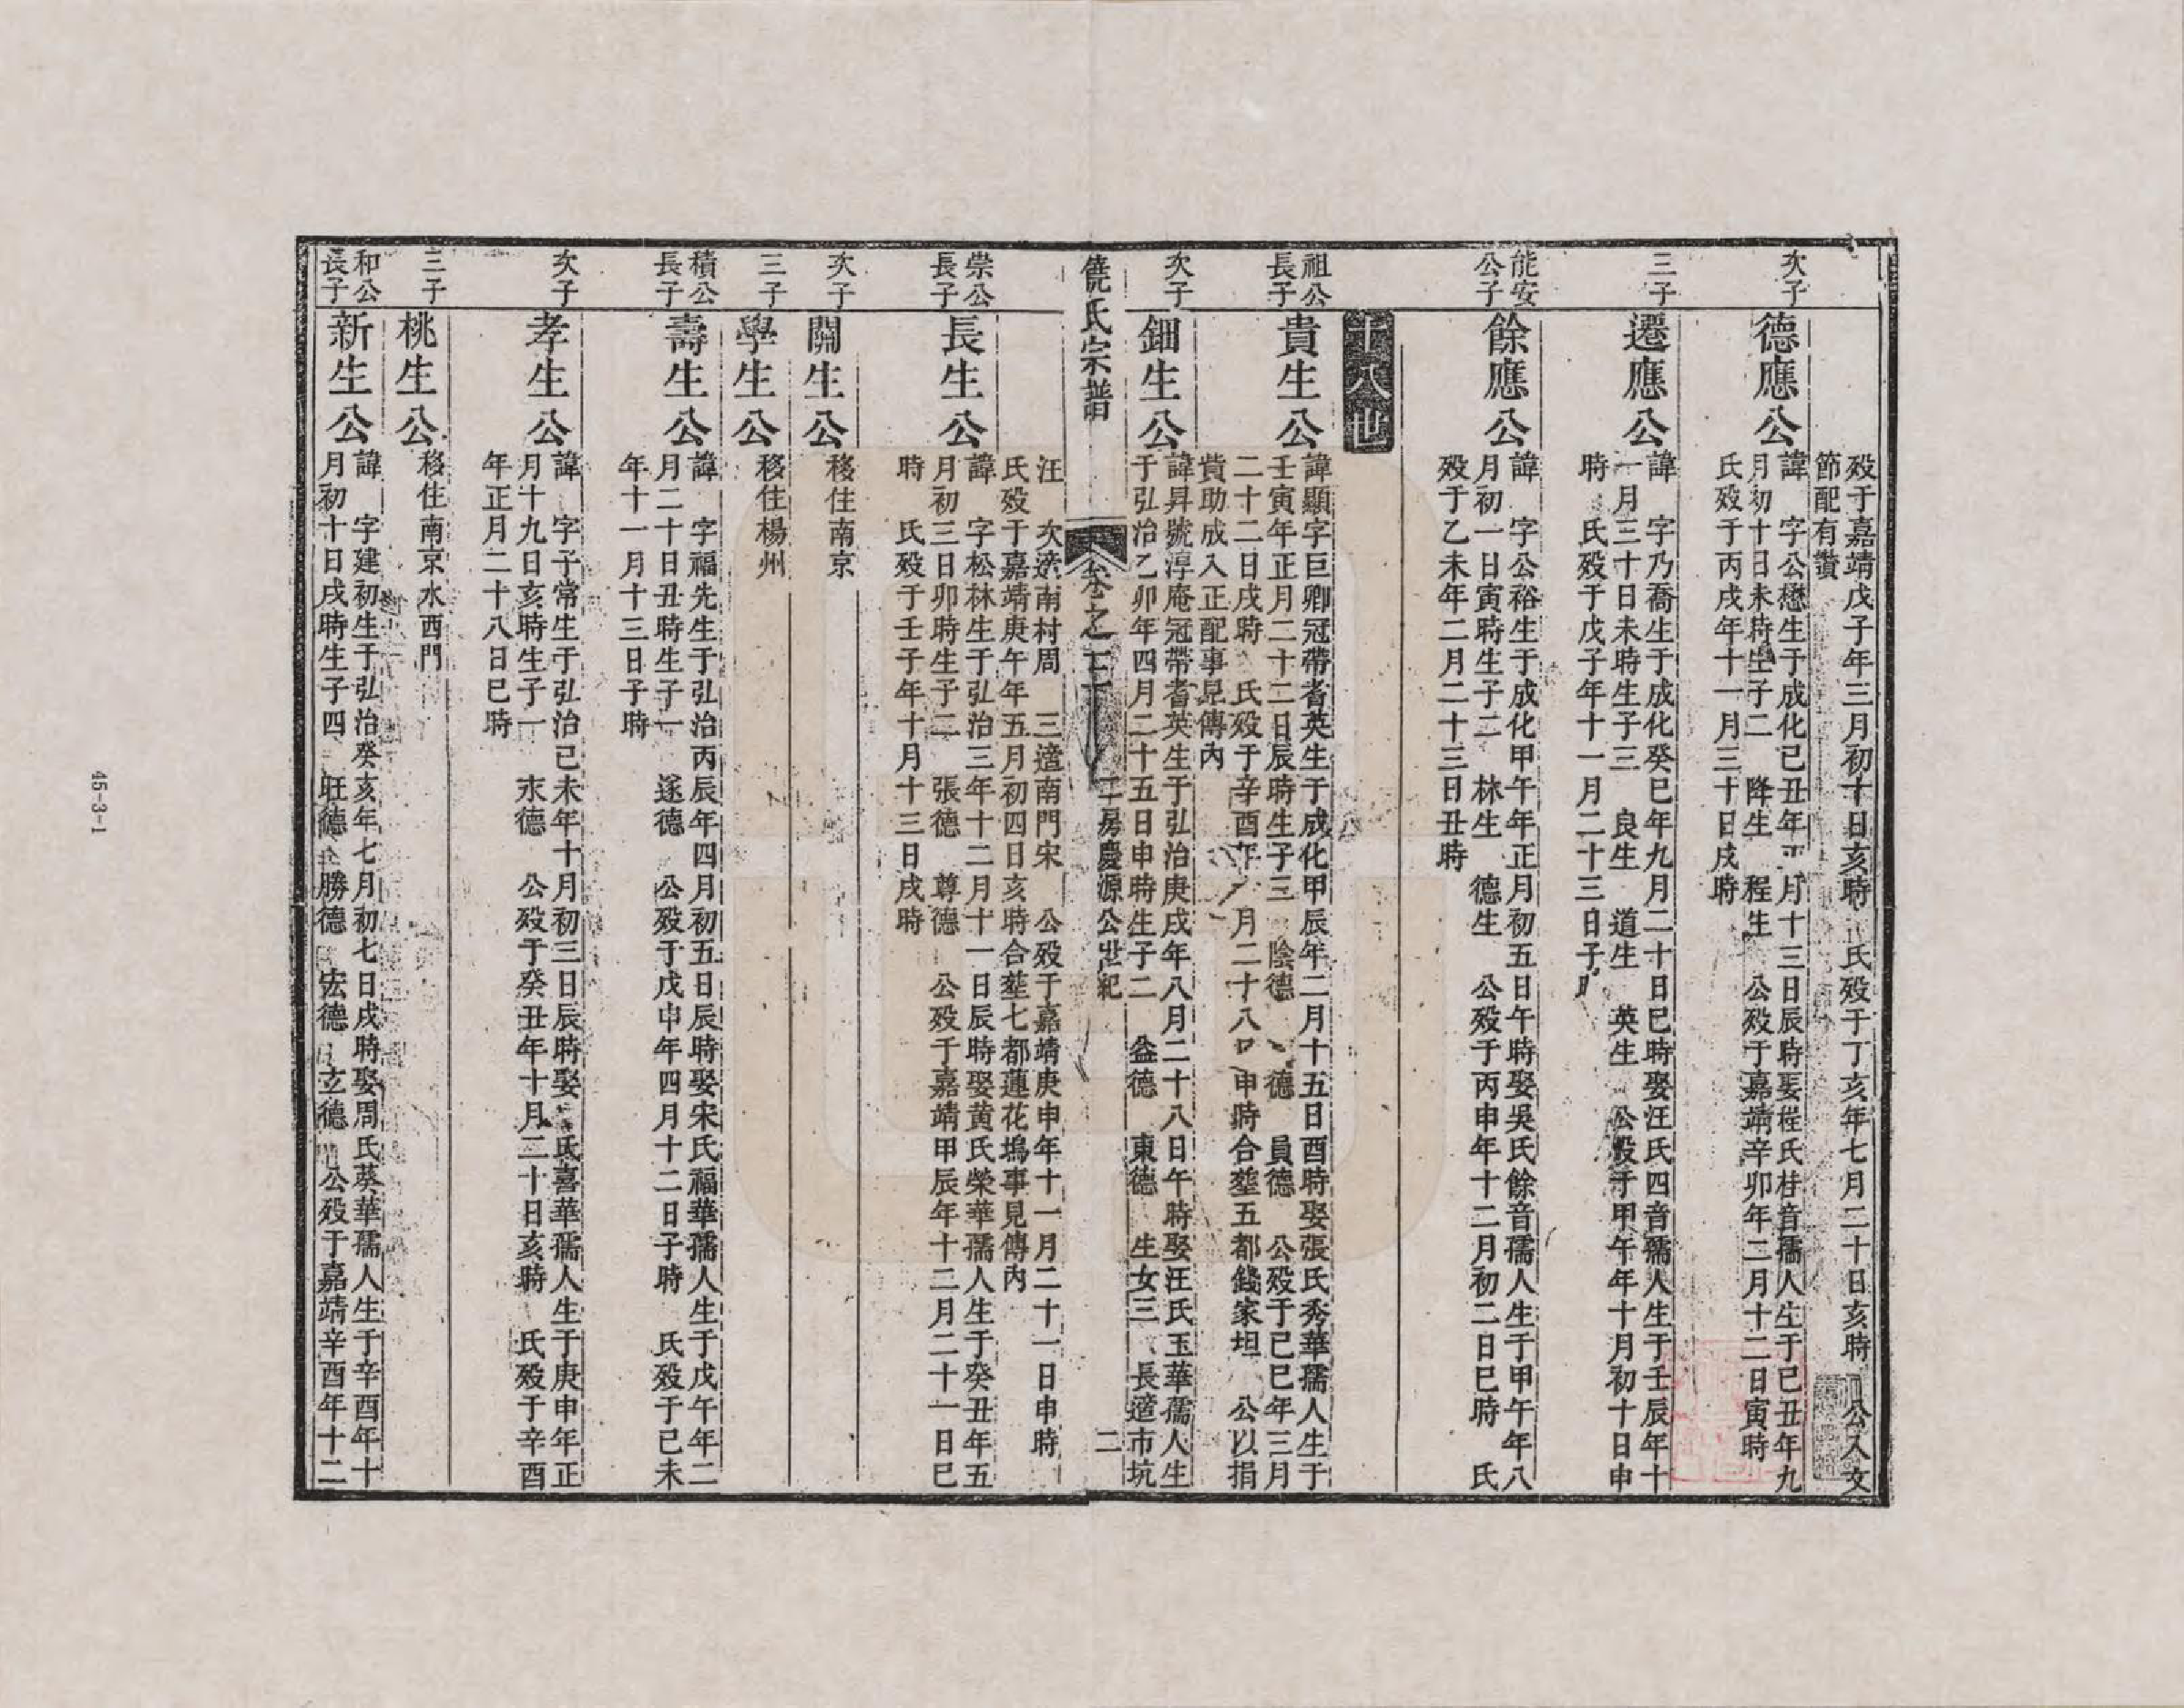 殁于嘉靖戊子年三月初十日亥時　氏殁于丁亥年七月二十日亥時　公入文
節配有贊
次子
德應公
諱　字公懋生于成化己丑年正月十三日辰時娶程氏桂音孺人生于己丑年九
月初十日未時生子二　降生　程生　公殁于嘉靖辛卯年二月十二日寅時
氏殁于丙戌年十一月三十日戌時
三子
遷應公
諱　字乃喬生于成化癸巳年九月二十日巳時娶汪氏四音孺人生于壬辰年十
一月三十日未時生子三　良生　道生　英生　公殁于甲午年十月初十日申
時　氏殁于戊子年十一月二十三日子時
能安
公子
餘應公
諱　字公裕生于成化甲午年正月初五日午時娶吳氏餘音孺人生于甲午年八
月初一日寅時生子二　林生　德生　公殁于丙申年十二月初二日巳時　氏
殁于乙未年二月二十三日丑時
十八世
祖公
長子
貴生公
諱顯字巨卿冠帶耆英生于成化甲辰年二月十五日酉時娶張氏秀華孺人生于
壬寅年正月二十二日辰時生子三　陰德　德　員德　公殁于己巳年三月
二十二日戌時　氏殁于辛酉年　月二十八日申時合塟五都錢家坦　公以捐
貲助成入正配事見傳內
次子
鈿生公
諱昇號淳庵冠帶耆英生于弘治庚戌年八月二十八日午時娶汪氏玉華孺人生
于弘治乙卯年四月二十五日申時生子二　益德　東德　生女三　長適市坑
饒氏宗譜　卷之　二房慶源公世紀　二
汪　次適南村周　三適南門宋　公殁于嘉靖庚申年十一月二十一日申時
氏殁于嘉靖庚午年五月初四日亥時合塟七都蓮花塢事見傳內
崇公
長子
長生公
諱　字松林生于弘治三年十二月十一日辰時娶黃氏榮華孺人生于癸丑年五
月初三日卯時生子二　張德　尊德　公殁于嘉靖甲辰年十二月二十一日巳
時　氏殁于壬子年十月十三日戌時
次子
關生公
移住南京
三子
學生公
移住楊州
積公
長子
壽生公
諱　字福先生于弘治丙辰年四月初五日辰時娶宋氏福華孺人生于戊午年二
月二十日丑時生子一　遂德　公殁于戊申年四月十二日子時　氏殁于己未
年十一月十三日子時
次子
孝生公
諱　字子常生于弘治己未年十月初三日辰時娶　氏喜華孺人生于庚申年正
月十九日亥時生子一　求德　公殁于癸丑年十月二十日亥時　氏殁于辛酉
年正月二十八日巳時
三子
桃生公
移住南京水西門
和公
長子
新生公
諱　字建初生于弘治癸亥年七月初七日戌時娶周氏葵華孺人生于辛酉年十
月初十日戌時生子四　旺德　勝德　宏德　立德　公殁于嘉靖辛酉年十二
45-3-1